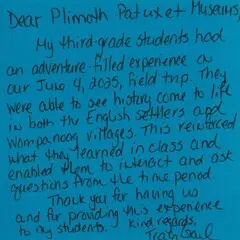 Dear Plimoth Patuxet Museums
My third-grade students had
an adventure-filled experience on
our June 4, 2025, field trip. They
were able to see history come to life
in both the English settlers and
Wampanoag villages. This reinforced
what they learned in class and
enabled them to interact and ask
questions from the time period.
Thank you for having us
and for providing this experience
to my students. Kind regards,